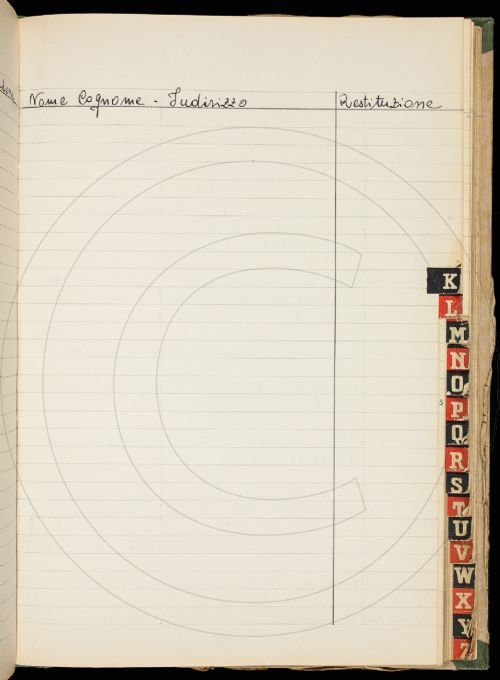 Nome Cognome - Indirizzo Restituzione
K
L
M
N
O
P
S
Q
R
S
T
U
V
W
X
Y
Z